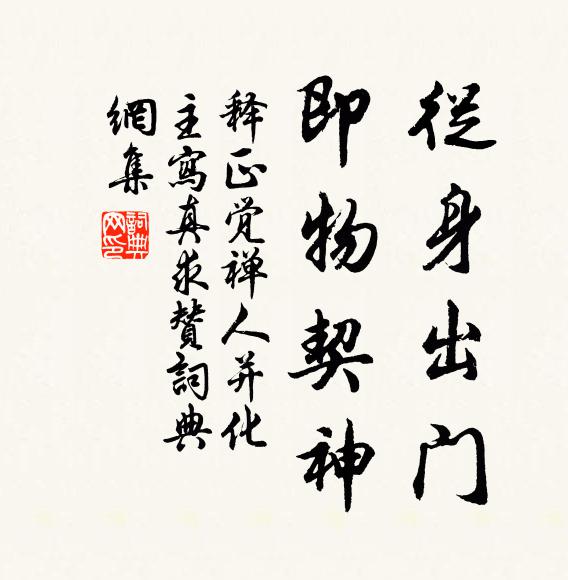 從身出门
即物契神
释正觉禅人并化
主寫真求贊詞典
網集
詞典
网印